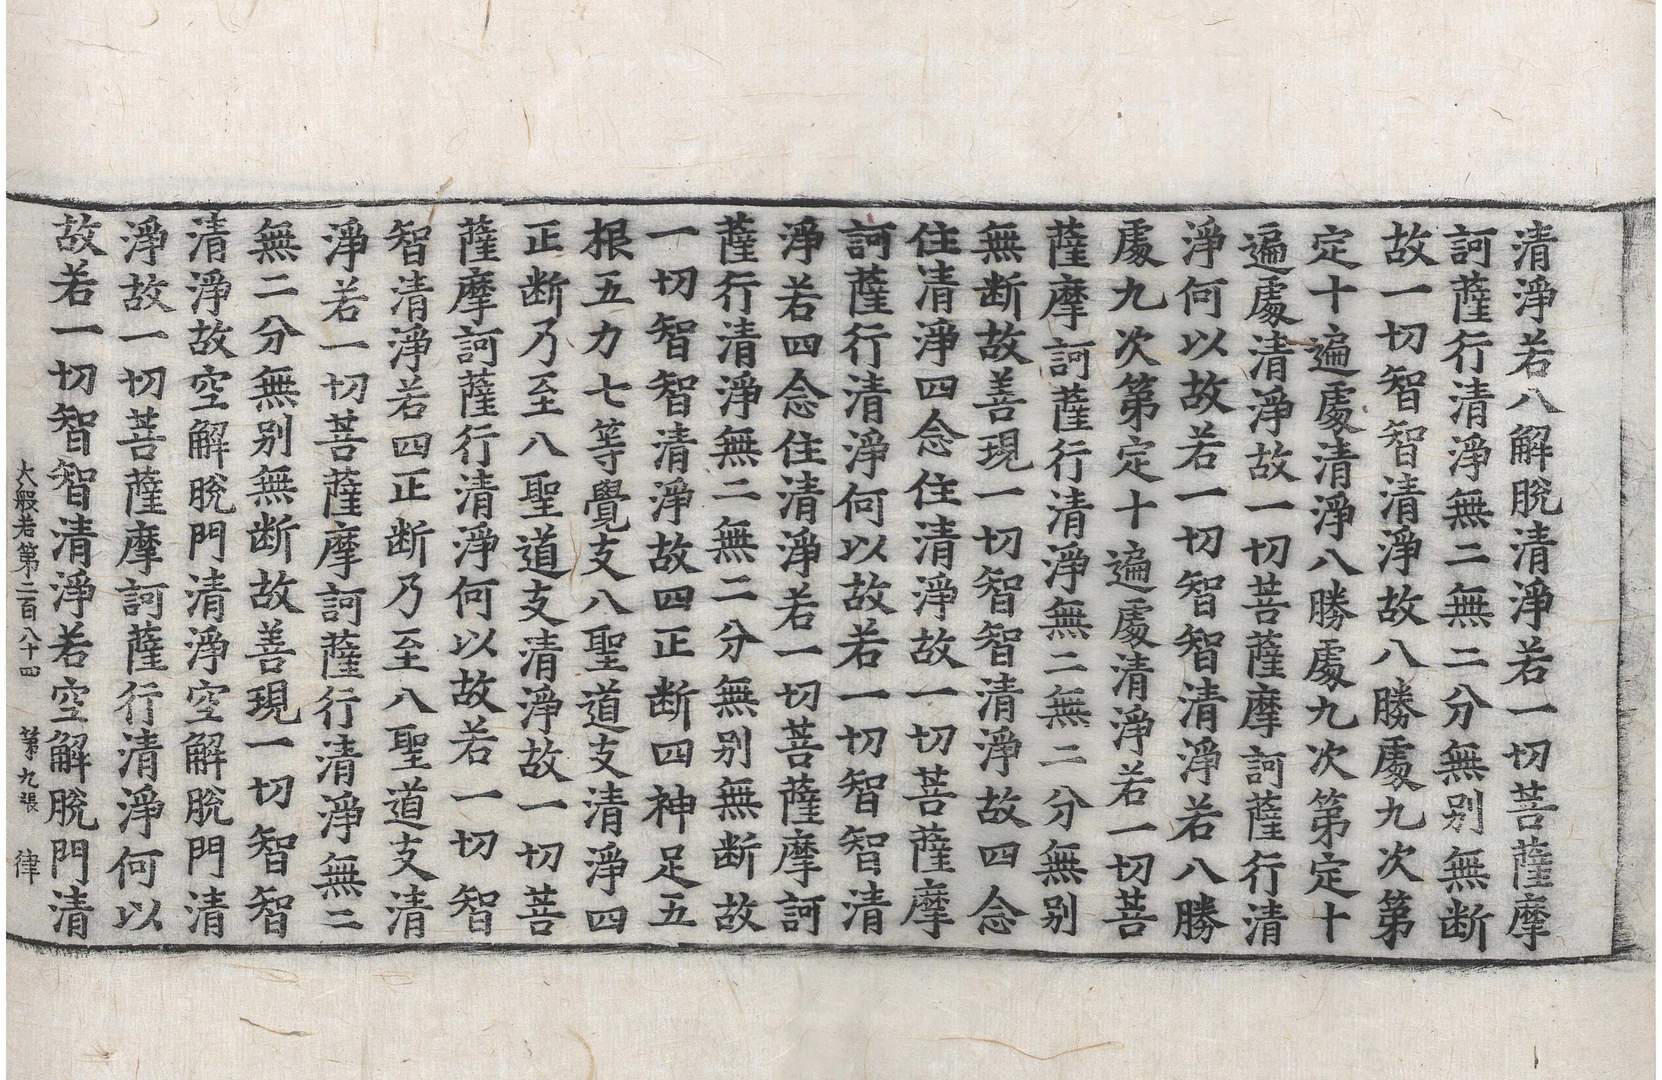 清淨若八解脫清淨若一切菩薩摩
訶薩行清淨無二無二分無别無断
故一切智智清淨故八勝處九次第
定十遍處清淨八勝處九次第定十
遍處清淨故一切菩薩摩訶薩行清
淨何以故若一切智智清淨若八勝
處九次第定十遍處清淨若一切菩
薩摩訶薩行清淨無二無二分無别
無断故善現一切智智清淨故四念
住清淨四念住清淨故一切菩薩摩
訶薩行清淨何以故若一切智智清
淨若四念住清淨若一切菩薩摩訶
薩行清淨無二無二分無别無断故
一切智智清淨故四正断四神足五
根五力七等覺支八聖道支清淨四
正断乃至八聖道支清淨故一切菩
薩摩訶薩行清淨何以故若一切智
智清淨若四正断乃至八聖道支清
淨若一切菩薩摩訶薩行清淨無二
無二分無别無断故善現一切智智
清淨故空解脫門清淨空解脫門清
淨故一切菩薩摩訶薩行清淨何以
故若一切智智清淨若空解脫門清
大般若第二百八十四 第九張 律